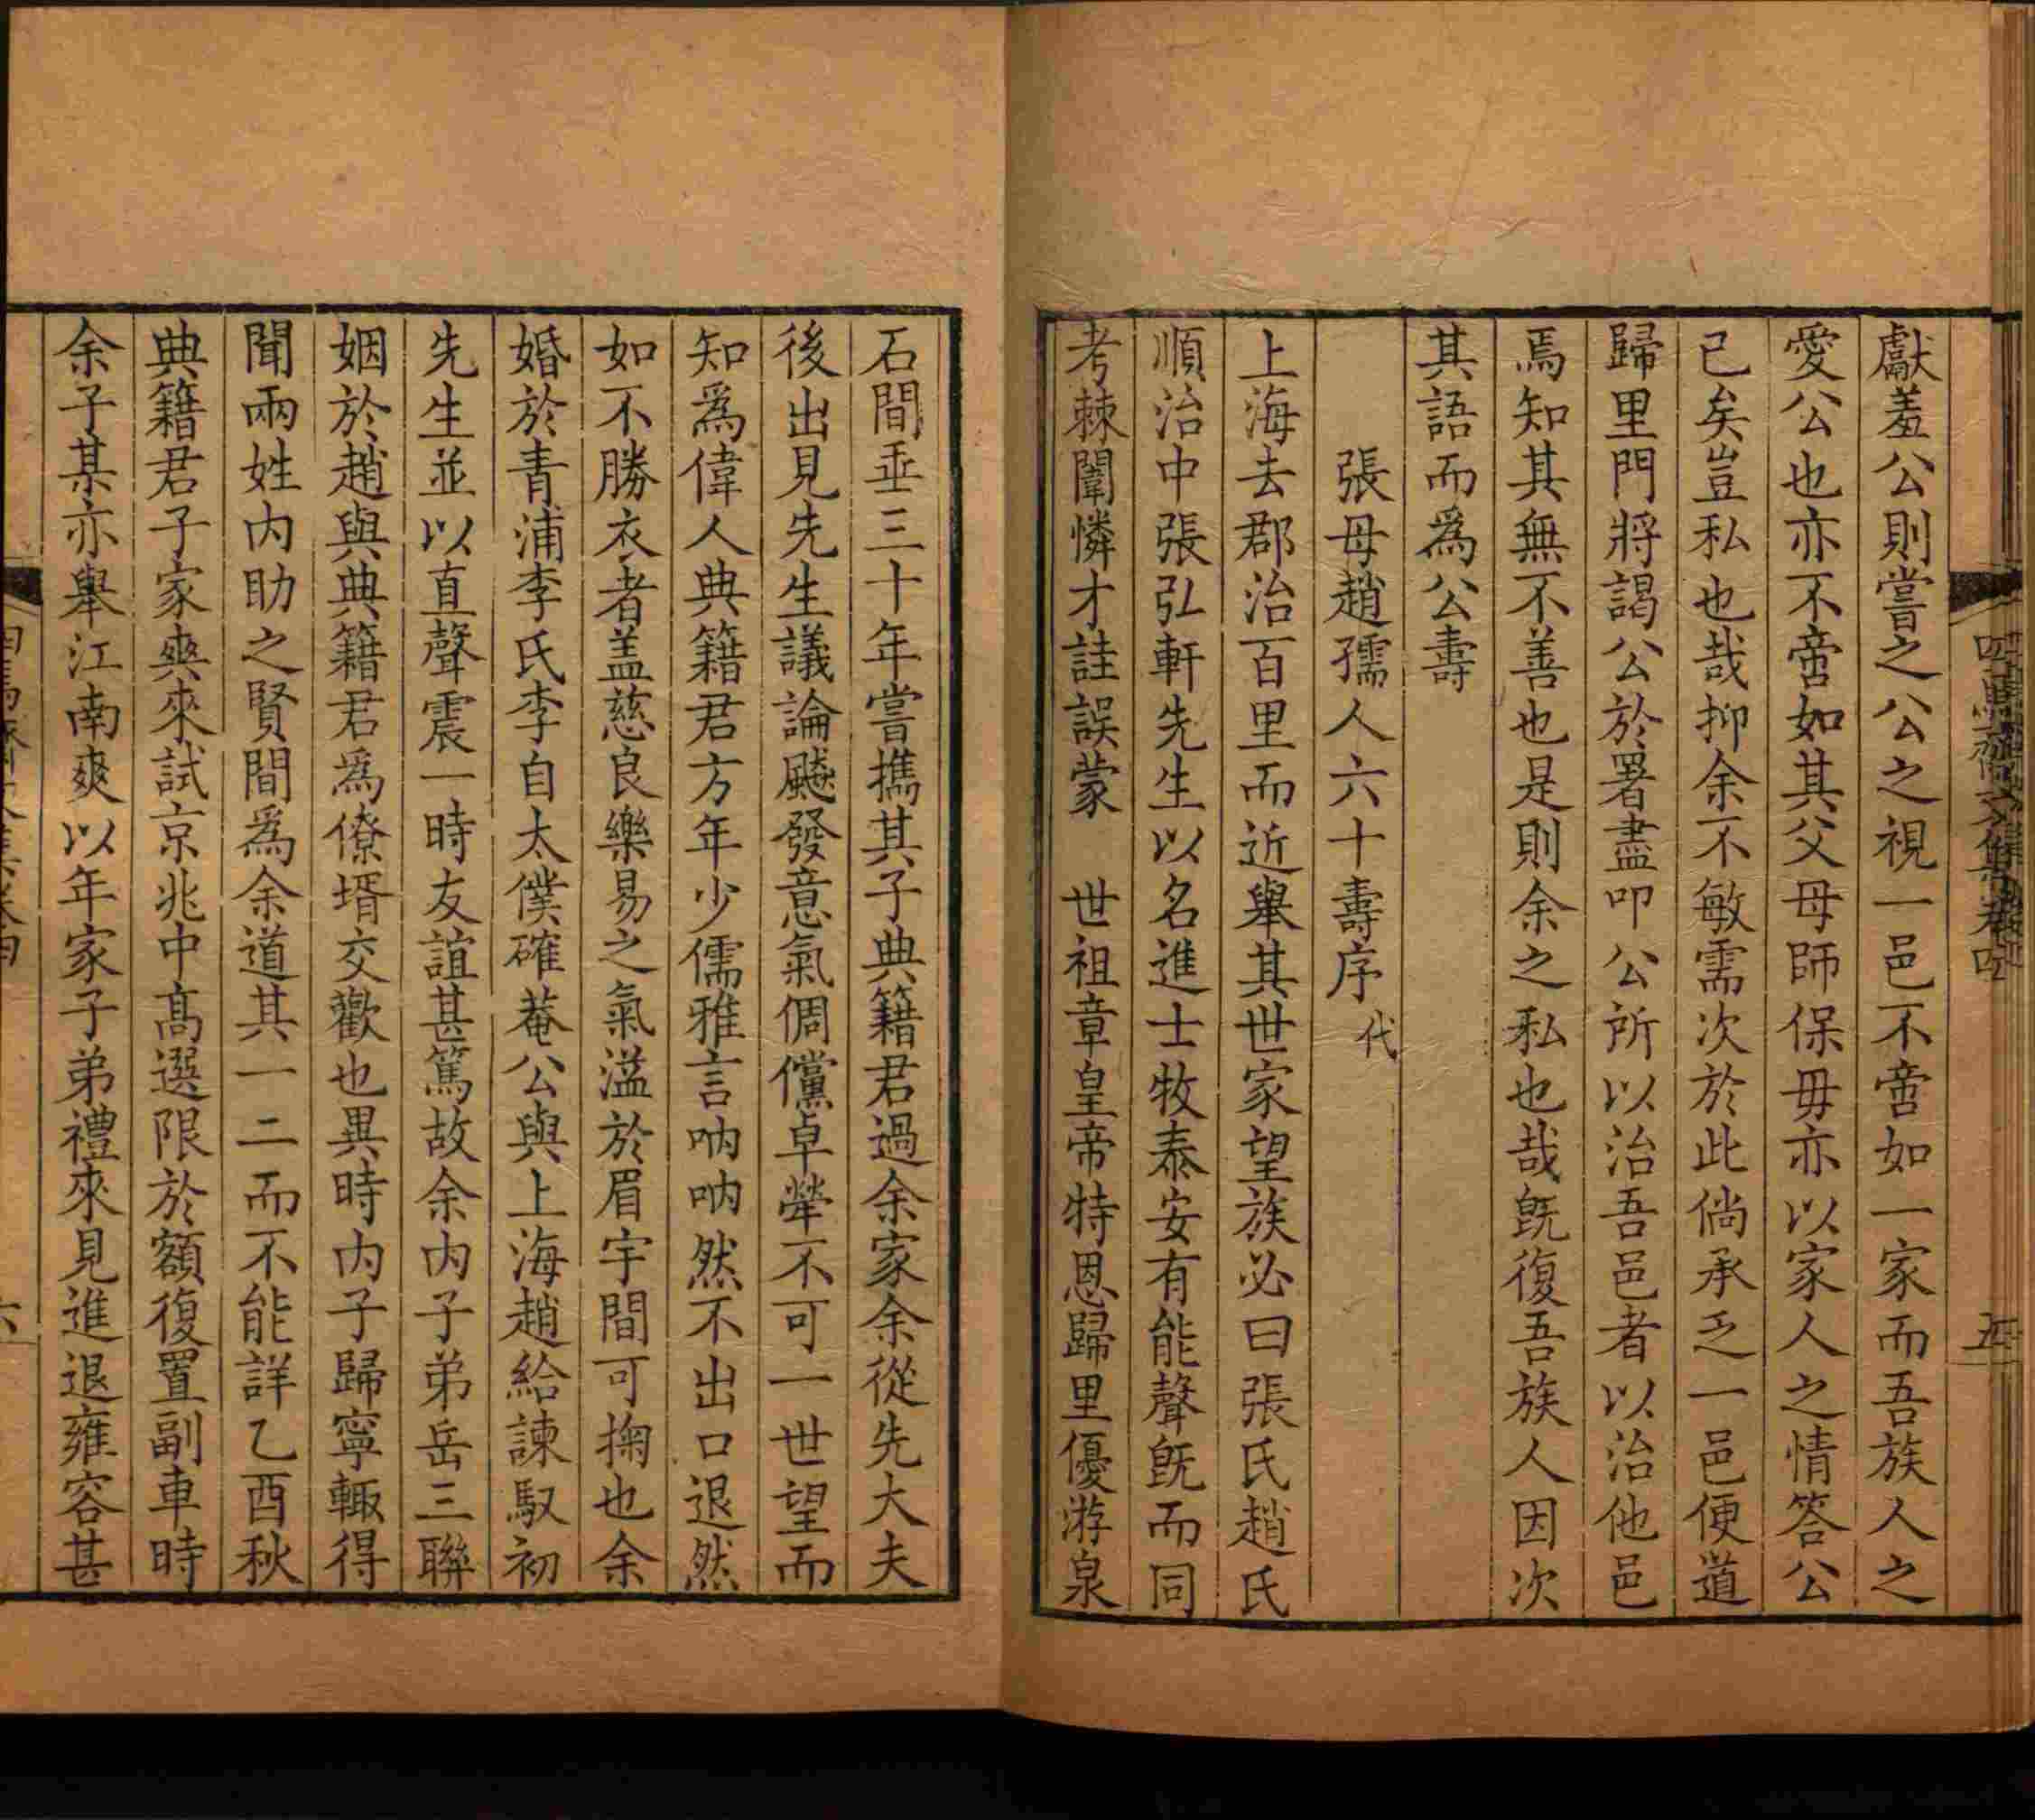 獻羞公則嘗之公之視一邑不啻如一家而吾族人之
愛公也亦不啻如其父母師保毋亦以家人之情答公
已矣豈私也哉抑余不敏需次於此倘承乏一邑便道
歸里門將謁公於署盡叩公所以治吾邑者以治他邑
焉知其無不善也是則余之私也哉旣復吾族人因次
其語而爲公壽
張母趙孺人六十壽序代
上海去郡治百里而近舉其世家望族必曰張氏趙氏
順治中張弘軒先生以名進士牧泰安有能聲旣而同
考棘闈憐才詿誤蒙　世祖章皇帝特恩歸里優游泉
石間垂三十年嘗攜其子典籍君過余家余從先大夫
後出見先生議論飈發意氣倜儻卓犖不可一世望而
知爲偉人典籍君方年少儒雅言吶吶然不出口退然
如不勝衣者盖慈良樂易之氣溢於眉宇間可掬也余
婚於青浦李氏李自太僕確菴公與上海趙給諫馭初
先生並以直聲震一時友誼甚篤故余内子弟岳三聯
姻於趙與典籍君爲僚壻交歡也異時内子歸寧輒得
聞兩姓内助之賢間爲余道其一二而不能詳乙酉秋
典籍君子家奭來試京兆中髙選限於額復置副車時
余子某亦舉江南奭以年家子弟禮來見進退雍容甚